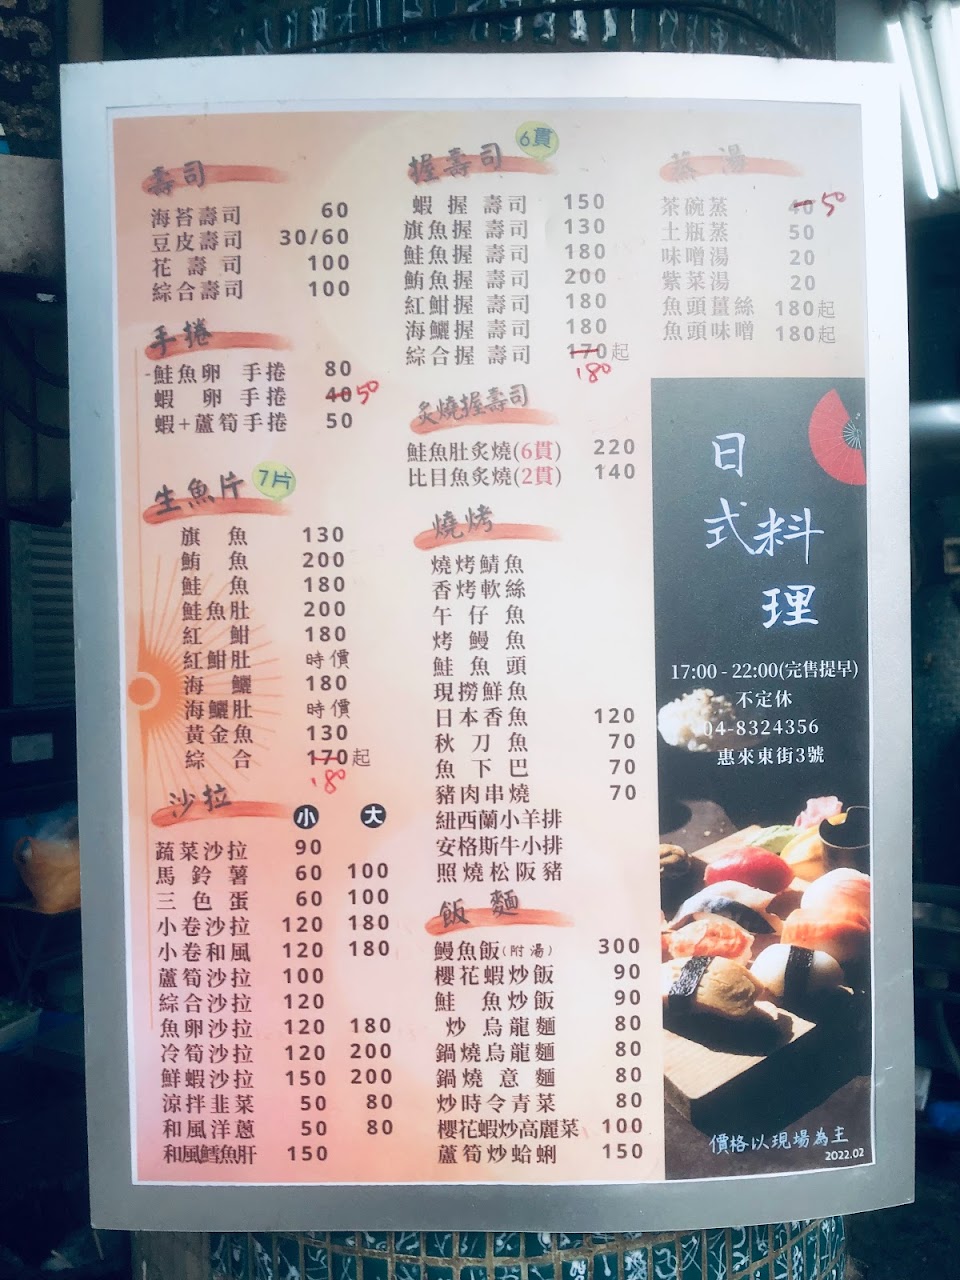 壽司
海苔壽司 60
豆皮壽司 30/60
花 壽 司 100
綜合壽司 100
手捲
-鮭魚卵 手捲 80
蝦 卵 手捲 40 50
蝦+蘆筍手捲 50
生魚片 7片
旗 魚 130
鮪 魚 200
鮭 魚 180
鮭魚肚 200
紅 魽 180
紅魽肚 時價
海 鱺 180
海鱺肚 時價
黃金魚 130
綜 合 170起
180
沙拉 小 大
蔬菜沙拉 90
馬 鈴 薯 60 100
三 色 蛋 60 100
小卷沙拉 120 180
小卷和風 120 180
蘆筍沙拉 100
綜合沙拉 120
魚卵沙拉 120 180
冷筍沙拉 120 200
鮮蝦沙拉 150 200
涼拌韭菜 50 80
和風洋蔥 50 80
和風鱈魚肝 150
握壽司 6貫
蝦 握 壽司 150
旗魚握 壽司 130
鮭魚握 壽司 180
鮪魚握 壽司 200
紅魽握 壽司 180
海鱺握 壽司 180
綜合握 壽司 170起
180
炙燒握壽司
鮭魚肚炙燒(6貫) 220
比目魚炙燒(2貫) 140
燒烤
燒烤鯖魚
香烤軟絲
午 仔 魚
烤 鰻 魚
鮭 魚 頭
現撈鮮魚
日本香魚 120
秋 刀 魚 70
魚 下 巴 70
豬肉串燒 70
紐西蘭小羊排
安格斯牛小排
照燒松阪豬
飯 麵
鰻魚飯(附湯) 300
櫻花蝦炒飯 90
鮭 魚炒飯 90
炒 烏龍麵 80
鍋燒烏龍麵 80
鍋燒 意 麵 80
炒時令青菜 80
櫻花蝦炒高麗菜 100
蘆筍炒蛤蜊 150
蒸 湯
茶碗蒸 40 50
土瓶蒸 50
味噌湯 20
紫菜湯 20
魚頭薑絲 180起
魚頭味噌 180起
日式料理
17:00 - 22:00(完售提早)
不定休
04-8324356
惠來東街3號
價格以現場為主
2022.02